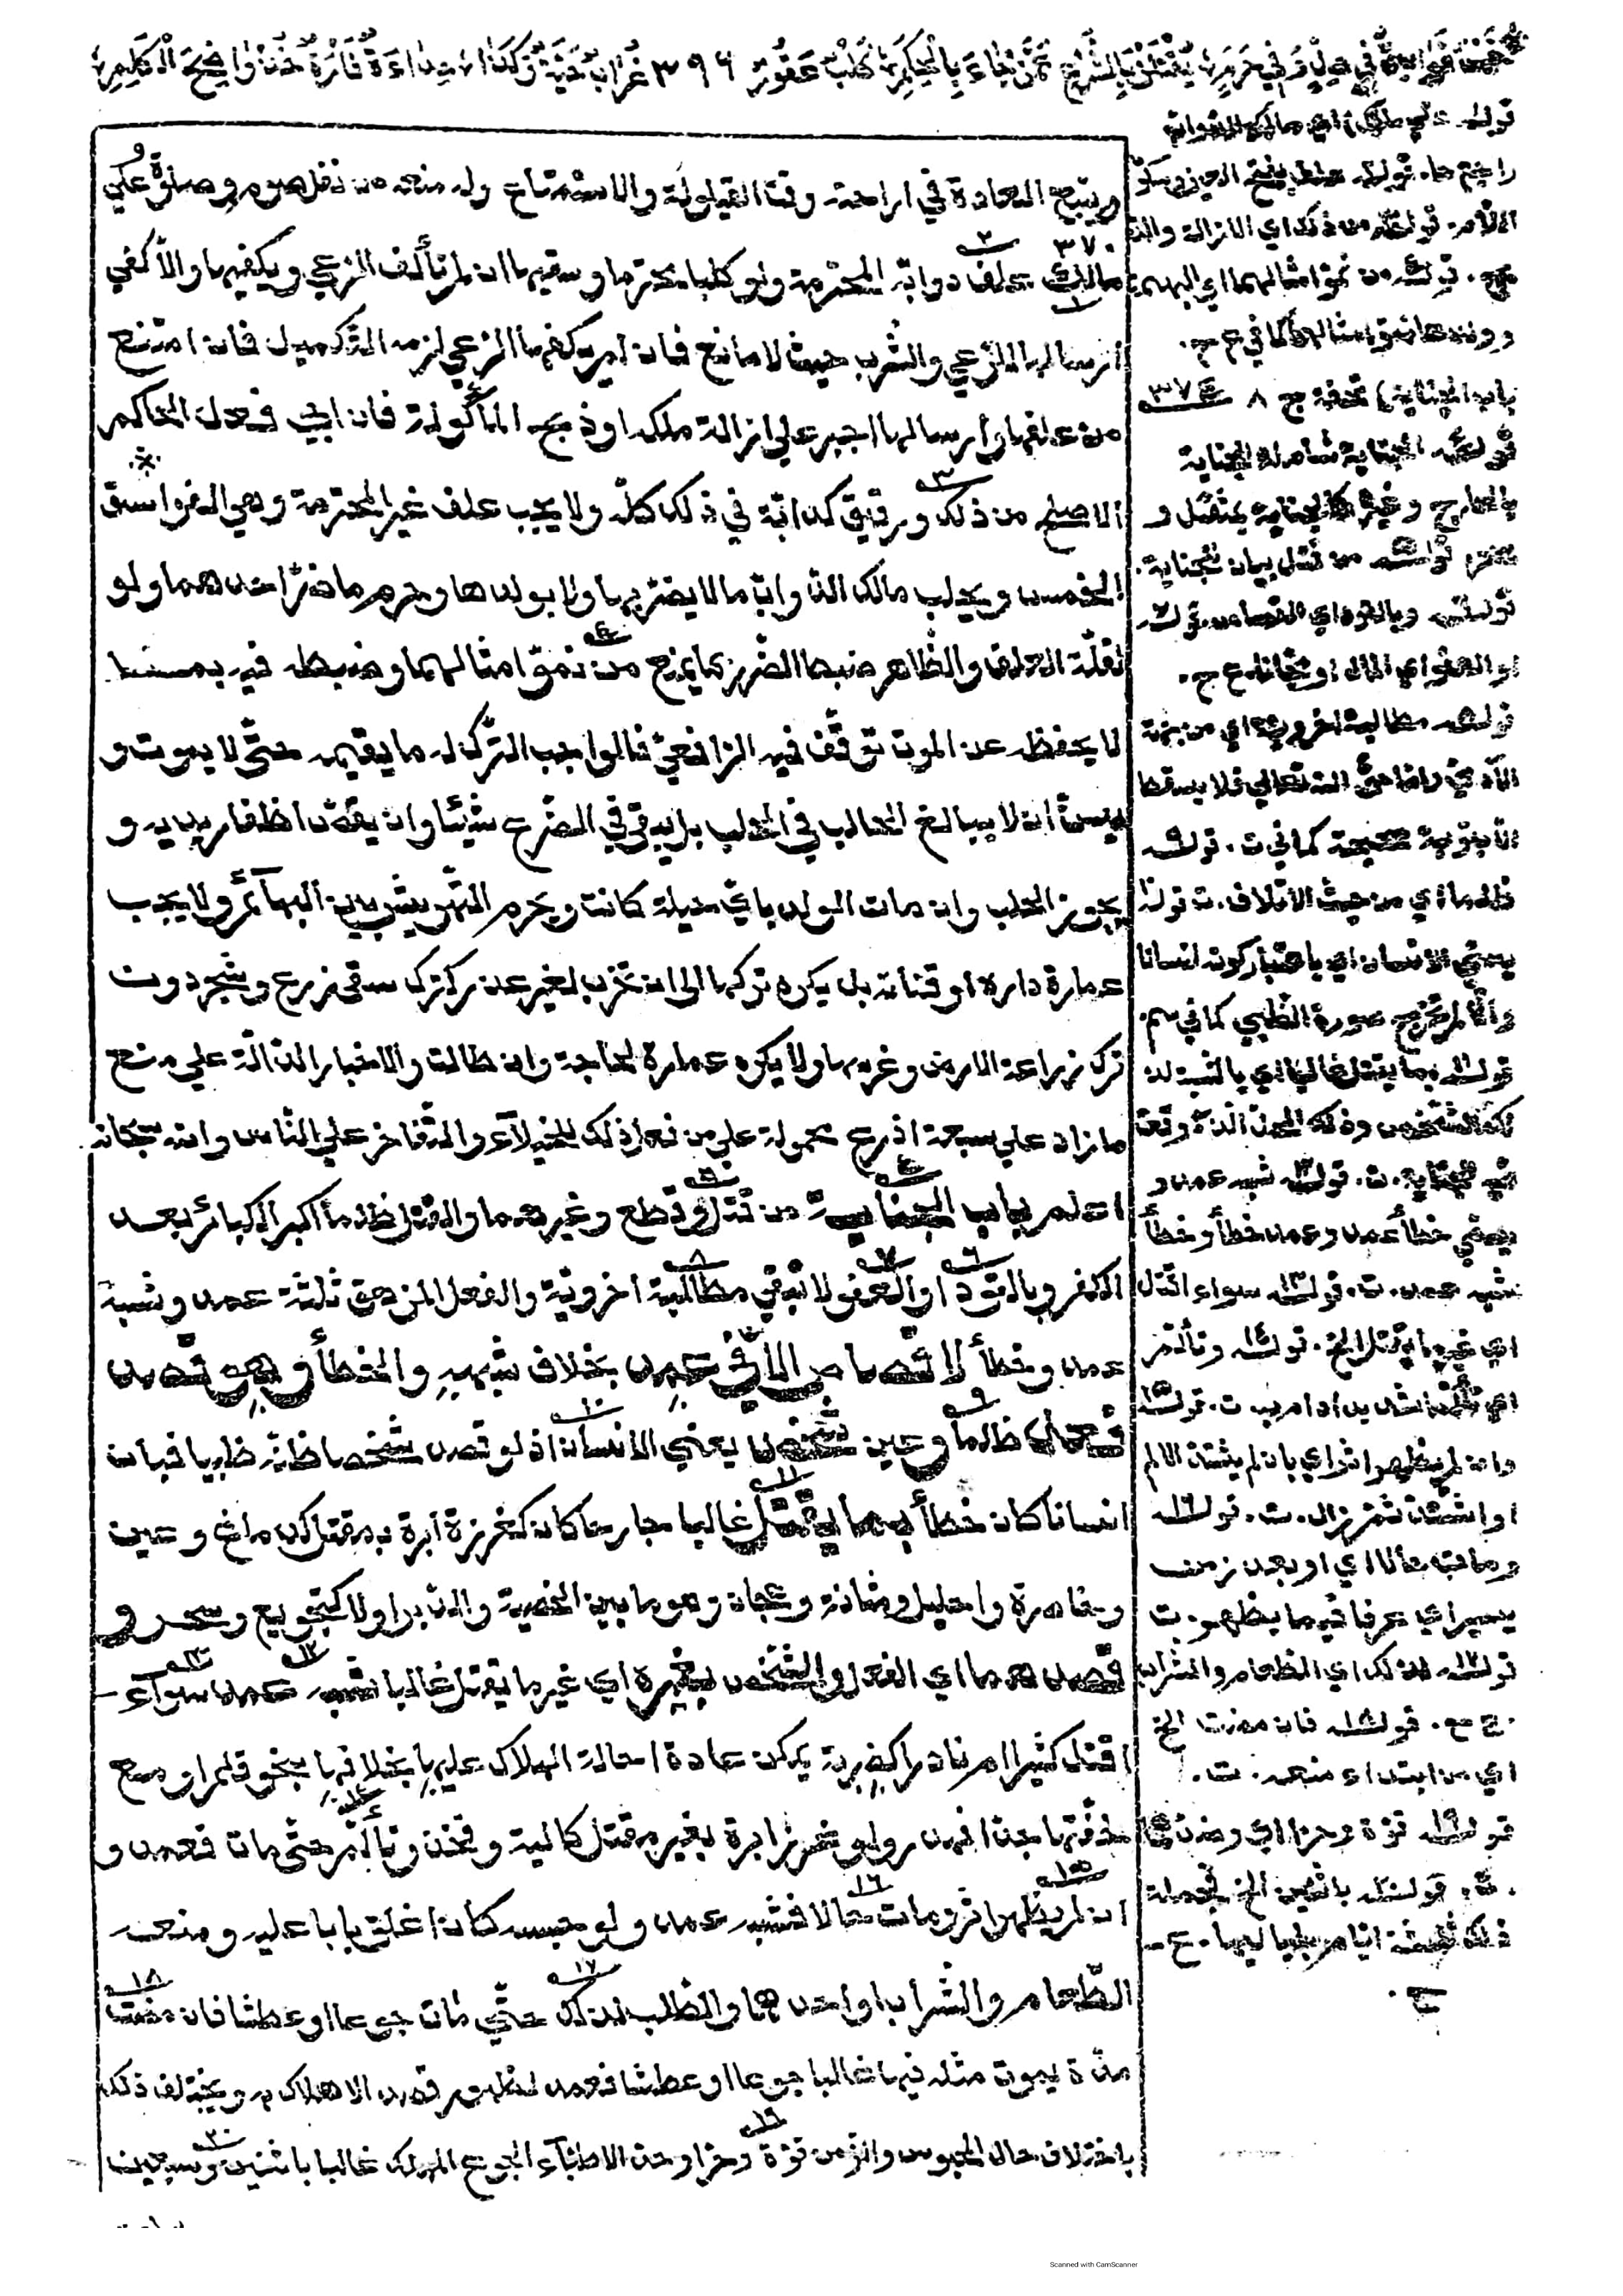 خمس فواسق في حل وفي حرم يقتلن بالشرع ممن جاء بالحكم كلب عقور ٣٩٦ غراب حية وكذا حدأة فأرة خذ واضح الكلم
ويتبع العادة في اراحته وقت القيلولة والاستمتاع وله منعه من نفل صوم وصلوة وعلي
٣٧٠
مالك علف دوابّه المحترمة ولو كلبا محترما وسقيها ان لم تألف الرعي ويكفيها والا كفي
ارسالها للرعي والشرب حيث لا مانع فان لم يكفها الرعي لزمه التكميل فان امتنع
من علفها وارسالها اجبر علي ازالة ملكه او ذبح المأكولة فان ابي فعل الحاكم
الاصلح من ذلك ورقيق كدابّة في ذلك كلّه ولا يجب علف غير المحترمة وهي الفواسق
الخمس ويحلب مالك الدوابّ ما لا يضرّ بها ولا بولدها وحرم ما ضرّ احدهما ولو
لقلّة العلف والظاهر ضبط الضرر بما يمنع من نموّ امثالهما وضبطه فيه بما
لا يحفظه عن الموت توقّف فيه الرافعيّ فالواجب الترك له ما يقيمه حتّي لا يموت و
يسنّ ان لا يبالغ الحالب في الحلب بل يبقي في الضرع شيئا وان يقصّ اظفار يديه و
يجوز الحلب وان مات الولد باي حيلة كانت ويحرم التهريش بين البهائم ولا يجب
عمارة داره او قناته بل يكره تركها الي ان تخرب لغير عذر كترك سقي زرع وشجر دون
ترك زراعة الارض وغرسها ولا يكره عمارة لحاجة وان طالت والاخبار الدالّة علي منع
ما زاد علي سبعة اذرع محمولة علي من فعل ذلك للخيلاء والتفاخر علي الناس والله سبحانه
اعلم باب الجناية من قتل وقطع وغيرهما والقتل ظلما أكبر الكبائر بعد
الكفر وبالقود او العفو لا تبقي مطالبة اخرويّة والفعل المزهق ثلثة عمد وشبه
عمد وخطأ لا قصاص الّا في عمد بخلاف شبهه والخطأ وهو قصد
فعل ظلما وعين شخص يعني الانسان اذ لو قصد شخصا ظانّه ظبيا فبان
انسانا كان خطأ بما يقتل غالبا جارحا كان كغرزة ابرة بمقتل كدماغ وعين
وخاصرة واحليل ومثانة وعجان وهو ما بين الخصية والدبر او لا كتجويع وسحر و
قصدهما اي الفعل والشخص بغيره اي غير ما يقتل غالبا شبه عمد سواء
اقتل كثيرا ام نادرا كضربة يمكن عادة احالة الهلاك عليها بخلافها بنحو قلم او مع
خفّتها جدّا فهدر ولو غرز ابرة بغير مقتل كالية وفخذ وتألّم حتّي مات فعمد و
ان لم يظهر اثر ومات حالا فشبه عمد ولو حبسه كأن اغلق بابا عليه ومنعه
الطّعام والشراب او احدهما والطلب لذلك حتّي مات جوعا او عطشا فان مضت
مدّة يموت مثله فيها غالبا جوعا او عطشا فعمد لظهور قصد الاهلاك به ويختلف ذلك
باختلاف حال المحبوس والزمن قوّة وحرّا وحدّ الاطبّاء الجوع المهلك غالبا باثنين وسبعين
قوله علي مالك اي مالك الدوابّ
راجع حا. قوله علف بفتح العين وسكون
اللام. قوله من ذلك اي الازالة والذ
بح. قوله من نموّ امثالهما اي البهيمة
وولدها نموّ امثالهما كما في ع ج.
باب الجناية تحفة ج ٨ ٣٧
قوله الجناية شاملة للجناية
بالجارح وغيره كالجناية بمثقل و
سحر. قوله من قتل بيان للجناية.
قوله وبالقود اي القصاص. قوله
او العفو اي علي المال او مجانا. ع ج.
قوله مطالبة اخرويّة اي من جهة
الآدمي واما حقّ الله تعالي فلا يسقط
الا بتوبة صحيحة كما في ت. قوله
ظلما اي من حيث الاتلاف. ت قوله
يعني الانسان اي باعتبار كونه انسانا
والّا لم تخرج صورة الظبي كما في سم.
قوله بما يقتل غالبا اي بالنسبة لذ
لك الشخص وذلك المحلّ الذي وقعت
فيه الجناية. ت. قوله شبه عمد و
يسمّي خطأ عمد وعمد خطأ وخطأ
شبه عمد. ت. قوله سواء اقتل
اي غير ما يقتل الخ. قوله وتألّم
اي تألّما شديدا دام به. ت. قوله
وان لم يظهر اثر اي بان لم يشتدّ الالم
او اشتدّ ثمّ زال. ت. قوله
ومات حالا اي او بعد زمن
يسير اي عرفا فيما يظهر. ت
قوله لذلك اي الطعام والشراب
ج مع. قوله فان مضت الخ
اي من ابتداء منعه. ت.
قوله قوّة وحرّا اي وضدّهما
ت. قوله باثنين الخ فجملة
ذلك ثلثة ايام بلياليها. ع
ج.
Scanned with CamScanner